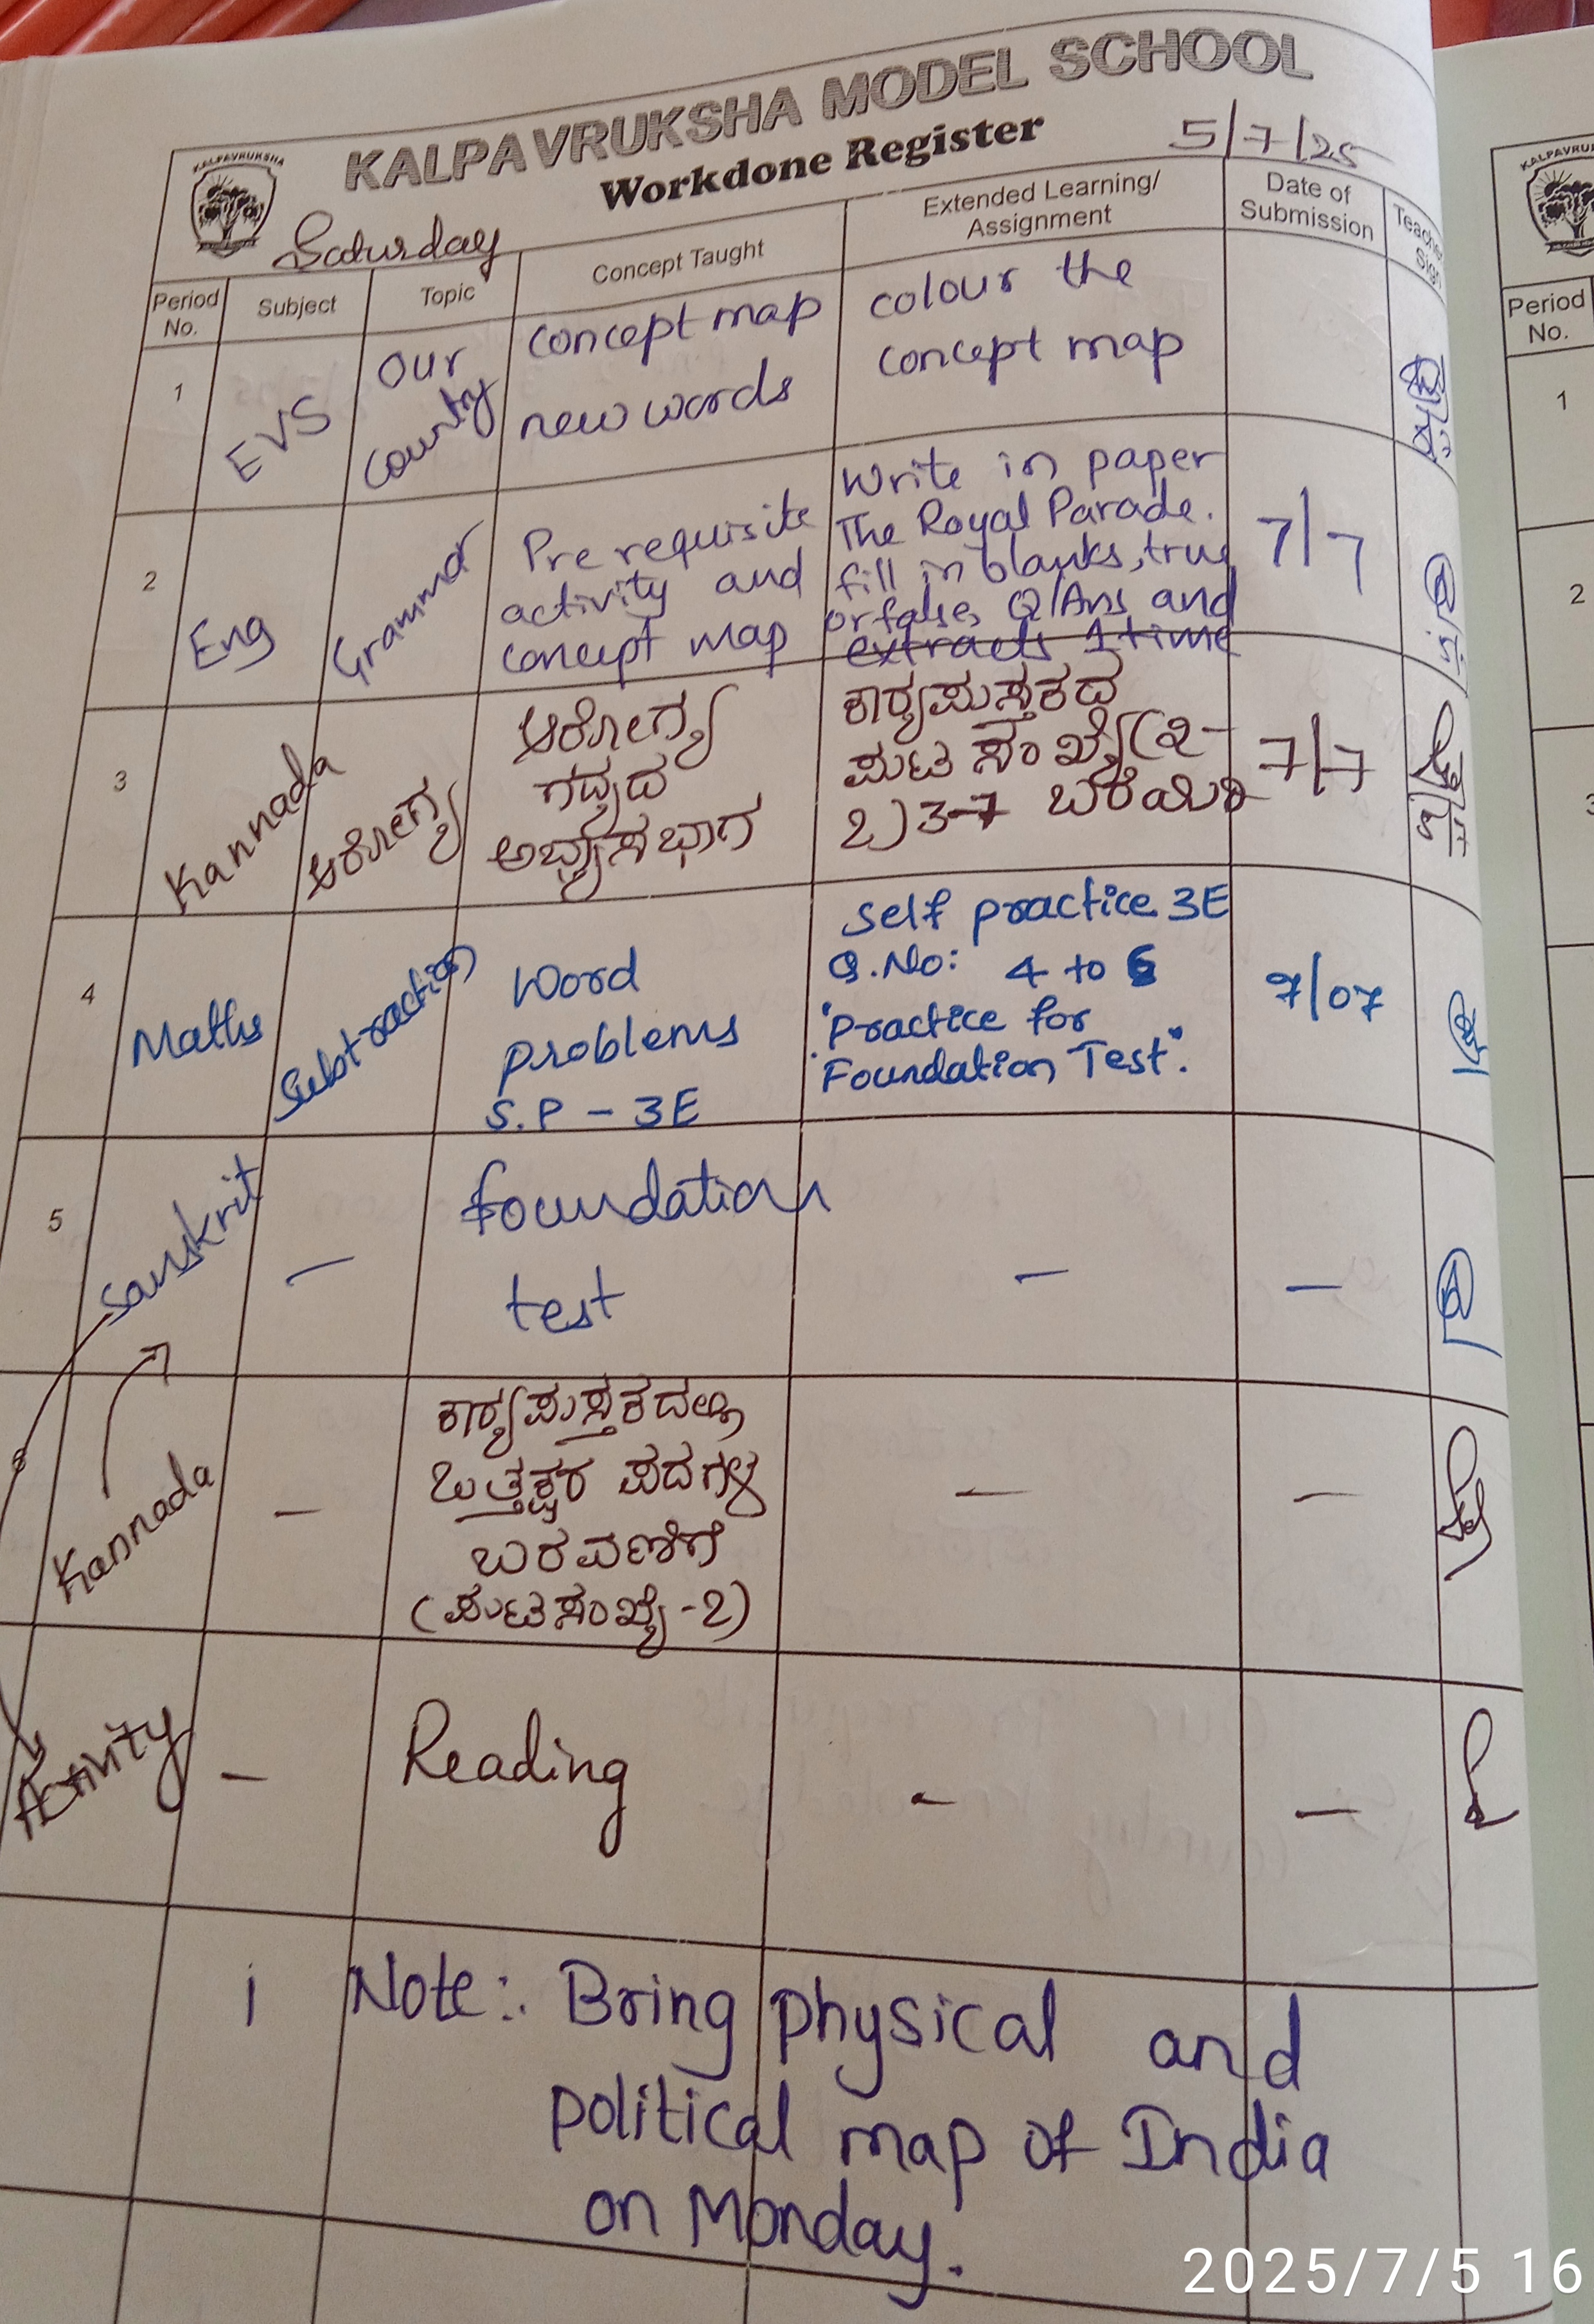 KALPAVRUKSHA MODEL SCHOOL
KALPAVRUKSHA
Workdone Register
5/7/25
Saturday
Period No.
Subject
Topic
Concept Taught
Extended Learning/ Assignment
Date of Submission
1
EVS
Our
Country
concept map
new words
colour the
concept map
2
Eng
Grammar
Pre requisite
activity and
concept map
Write in paper
The Royal Parade.
fill in blanks, true
or false, Q/Ans and
extracts 1 time
7/7
3
Kannada
ಆರೋಗ್ಯ
ಆರೋಗ್ಯ
ಗದ್ಯದ
ಅಭ್ಯಾಸ ಭಾಗ
ಕಾರ್ಯಪುಸ್ತಕದ
ಪುಟ ಸಂಖ್ಯೆ(2-
2) 3-7 ಬರೆಯಿರಿ
7/7
4
Maths
Subtraction
Word
problems
S.P - 3E
Self practice 3E
Q.No: 4 to 6
"Practice for
Foundation Test".
7/07
5
Sanskrit
—
foundation
test
—
—
6
Kannada
—
ಕಾರ್ಯಪುಸ್ತಕದಲ್ಲಿ
ಒತ್ತಕ್ಷರ ಪದಗಳ
ಬರವಣಿಗೆ
(ಪುಟ ಸಂಖ್ಯೆ-2)
—
—
Activity
—
Reading
—
—
Note:. Bring physical and
political map of India
on Monday.
Period No.
1
2
3
2025/7/5 16